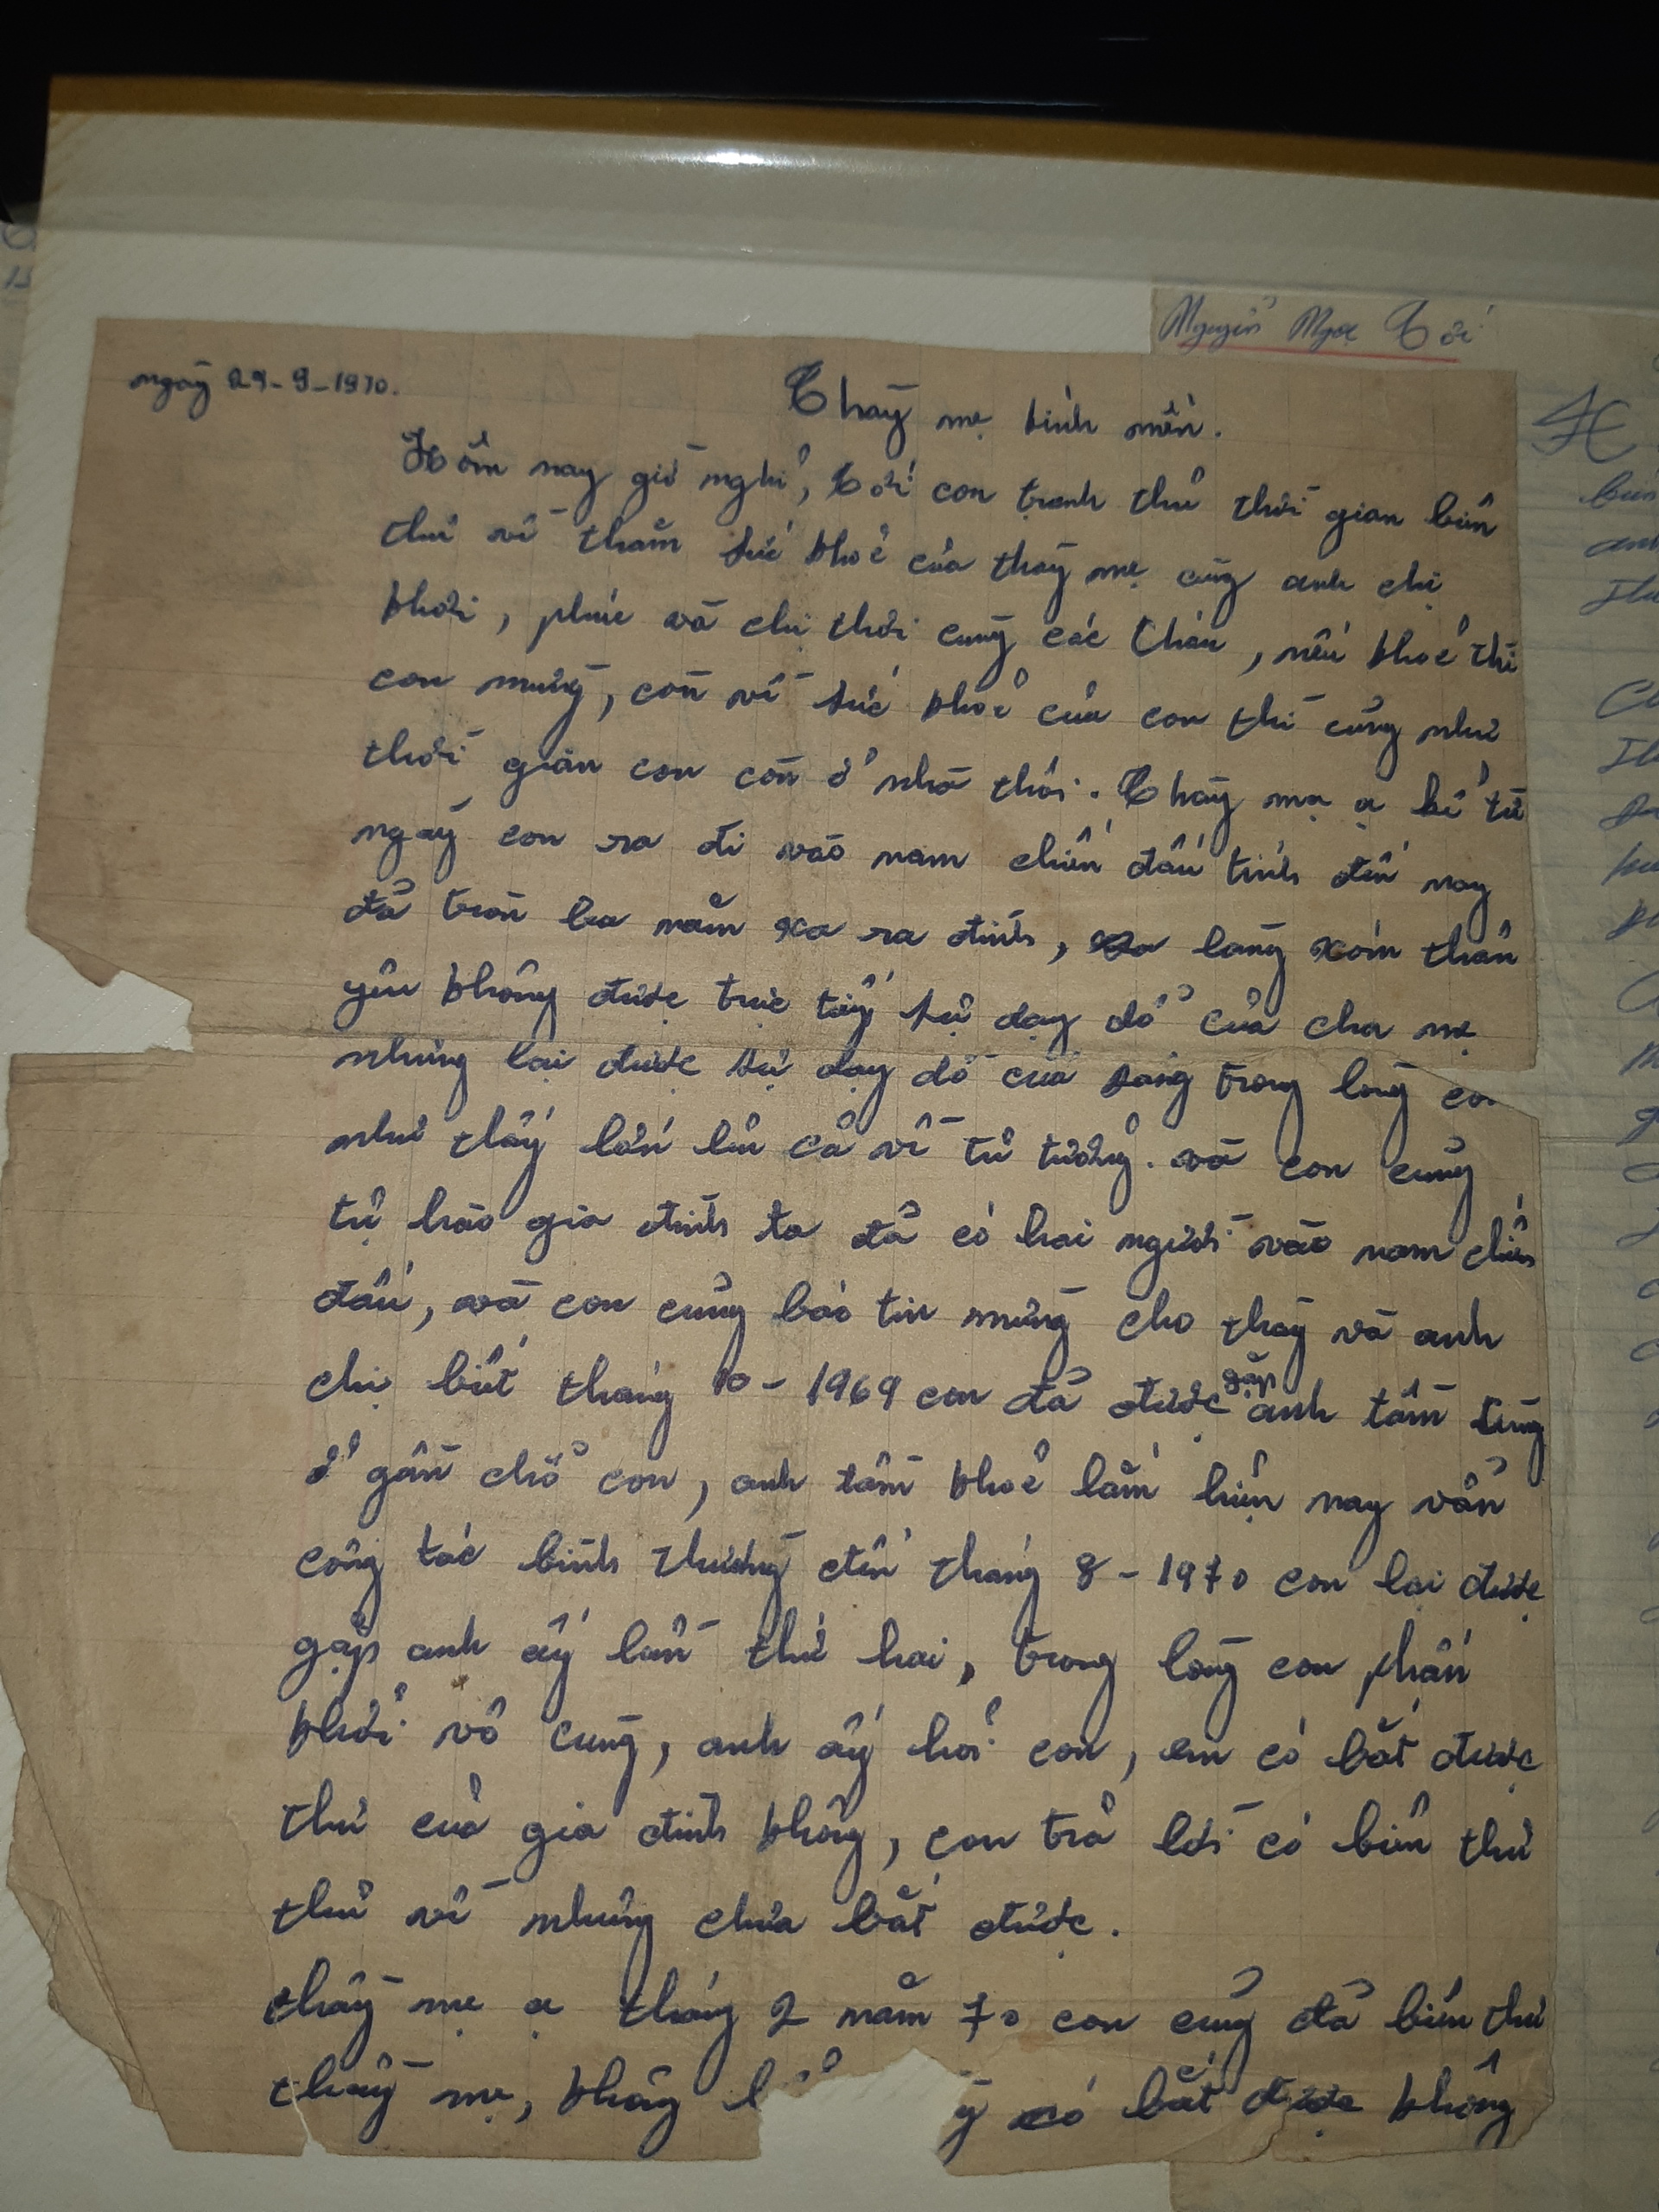 Nguyễn Ngọc Tới
ngày 29-9-1970.
Thầy mẹ kính mến.
Hôm nay giờ nghỉ, Tới con tranh thủ thời gian biên
thư về thăm sức khoẻ của thầy mẹ cùng anh chị
khởi, phúc và chị thới cùng các cháu, nếu khoẻ thì
con mừng, còn về sức khoẻ của con thì cũng như
thời gian con còn ở nhà thôi. Thầy mẹ ạ kể từ
ngày con ra đi vào nam chiến đấu tính đến nay
đã tròn ba năm xa ra đình, xa làng xóm thân
yêu không được trực tiếp sự dạy dỗ của cha mẹ
nhưng lại được sự dạy dỗ của Đảng trong lòng con
như thấy lớn lên cả về tư tưởng. và con cũng
tự hào gia đình ta đã có hai người vào nam chiến
đấu, và con cũng báo tin mừng cho thầy và anh
chị biết tháng 10-1969 con đã được gặp anh tâm cũng
ở gần chỗ con, anh tâm khoẻ lắm hiện nay vẫn
công tác bình thường đến tháng 8-1970 con lại được
gặp anh ấy lần thứ hai, trong lòng con phấn
khởi vô cùng, anh ấy hỏi con, em có bắt được
thư của gia đình không, con trả lời có biên thư
thư về nhưng chưa bắt được.
thầy mẹ ạ tháng 2 năm 70 con cũng đã biên thư
thầy mẹ, không có bắt được không